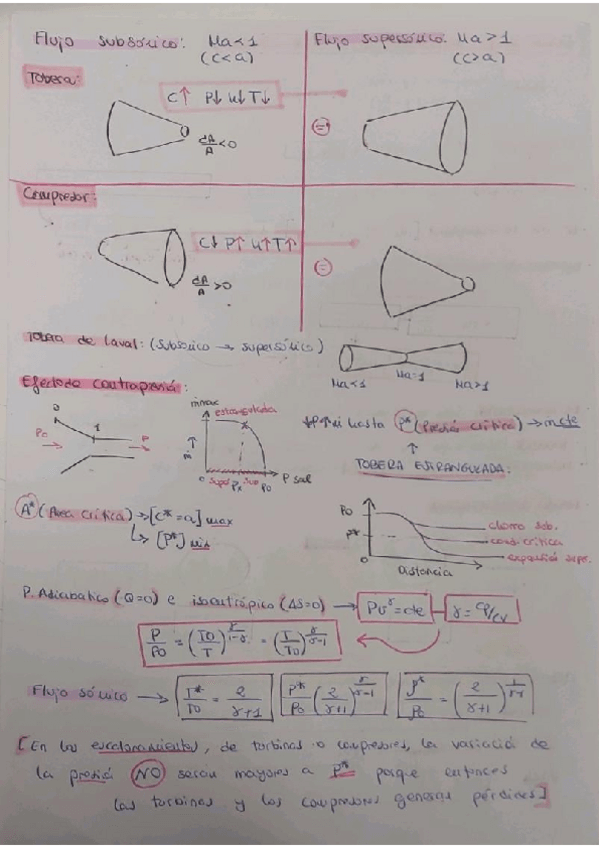 Flujo subsónico: Ma<1
(c<a)
Flujo supersónico: Ma>1
(c>a)
Tobera:
C↑ P↓ u↓ T↓
dA/A <0
=
Compresor:
C↓ P↑ u↑ T↑
dA/A >0
=
Tobera de Laval: (subsónico → supersónico)
Ma<1 Ma=1 Ma>1
Efecto de contrapresión:
0 1
P
ṁmax
estrangulada
ṁ
0 P* P0 P sal
hasta P* (Presión crítica) → ṁ cte
↑
TOBERA ESTRANGULADA.
A* (Área Crítica) → [c*=a] max
↳ [P*] min
P0
P*
0
Distancia
chorro sub.
cond. crítica
expansión supe.
P. Adiabático (Q=0) e isoentrópico (ΔS=0) → Pv^γ=cte γ=Cp/Cv
P/P0 = (T0/T)^γ/1-γ = (T/T0)^γ/γ-1
Flujo sónico → T*/T0 = 2/γ+1 P*/P0 (2/γ+1)^γ/γ-1 ρ*/ρ0 = (2/γ+1)
[En los escalonamientos, de turbinas o compresores, la variación de
la presión NO serán mayores a P* porque entonces
las turbinas y los compresores generan pérdidas]